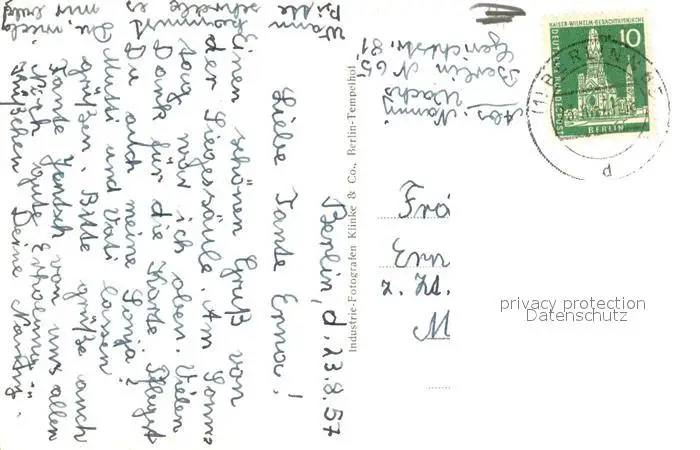 Berlin, d. 23.8.57
Liebe Tante Erna!
Einen schönen Gruß von
der Siegessäule. Am Sonn-
tag war ich oben. Vielen
Dank für die Karte. Pflegst
Du auch meine Sonja?
Mutti und Vati lassen
grüßen. Bitte grüße auch
Tante Jentsch von uns allen
Noch gute Erholung u.
Küßchen Deine Nanny.
Wann
kommst
Du
schreibe es
mir
Abs. Nanny
Wachs
Berlin N 65
Gerichtstr. 81
Industrie-Fotografen Klinke & Co., Berlin-Tempelhof
KAISER-WILHELM-GEDÄCHTNISKIRCHE
DEUTSCHE BUNDESPOST
10
BERLIN
(1) BERLIN
d
Frä
Ern
z. Zt.
M
privacy protection
Datenschutz